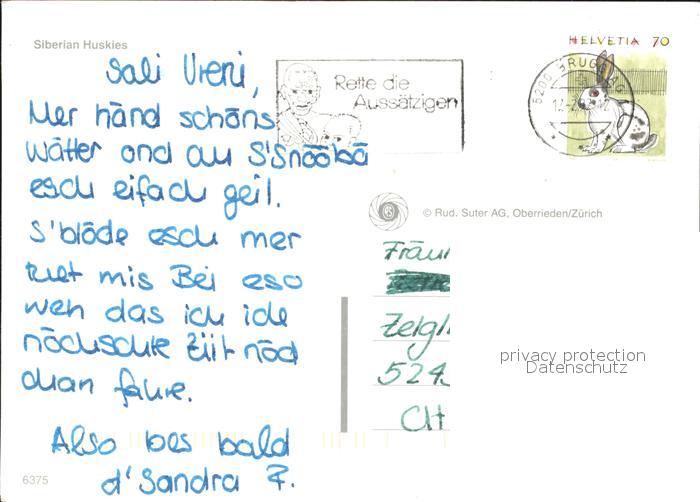 Siberian Huskies
HELVETIA 70
Sali Vreni,
Mer händ schöns
Wätter ond au S'Snööbä
esch eifach geil.
S'blöde esch mer
tuet mis Bei eso
weh das ich ide
nöchschte Ziit nöd
chan fahre.
Also bes bald
d'Sandra F.
Rette die
Aussätzigen
5200 BRUGG AG
© Rud. Suter AG, Oberrieden/Zürich
Fräul
Zelgli
524
CH
privacy protection
Datenschutz
6375